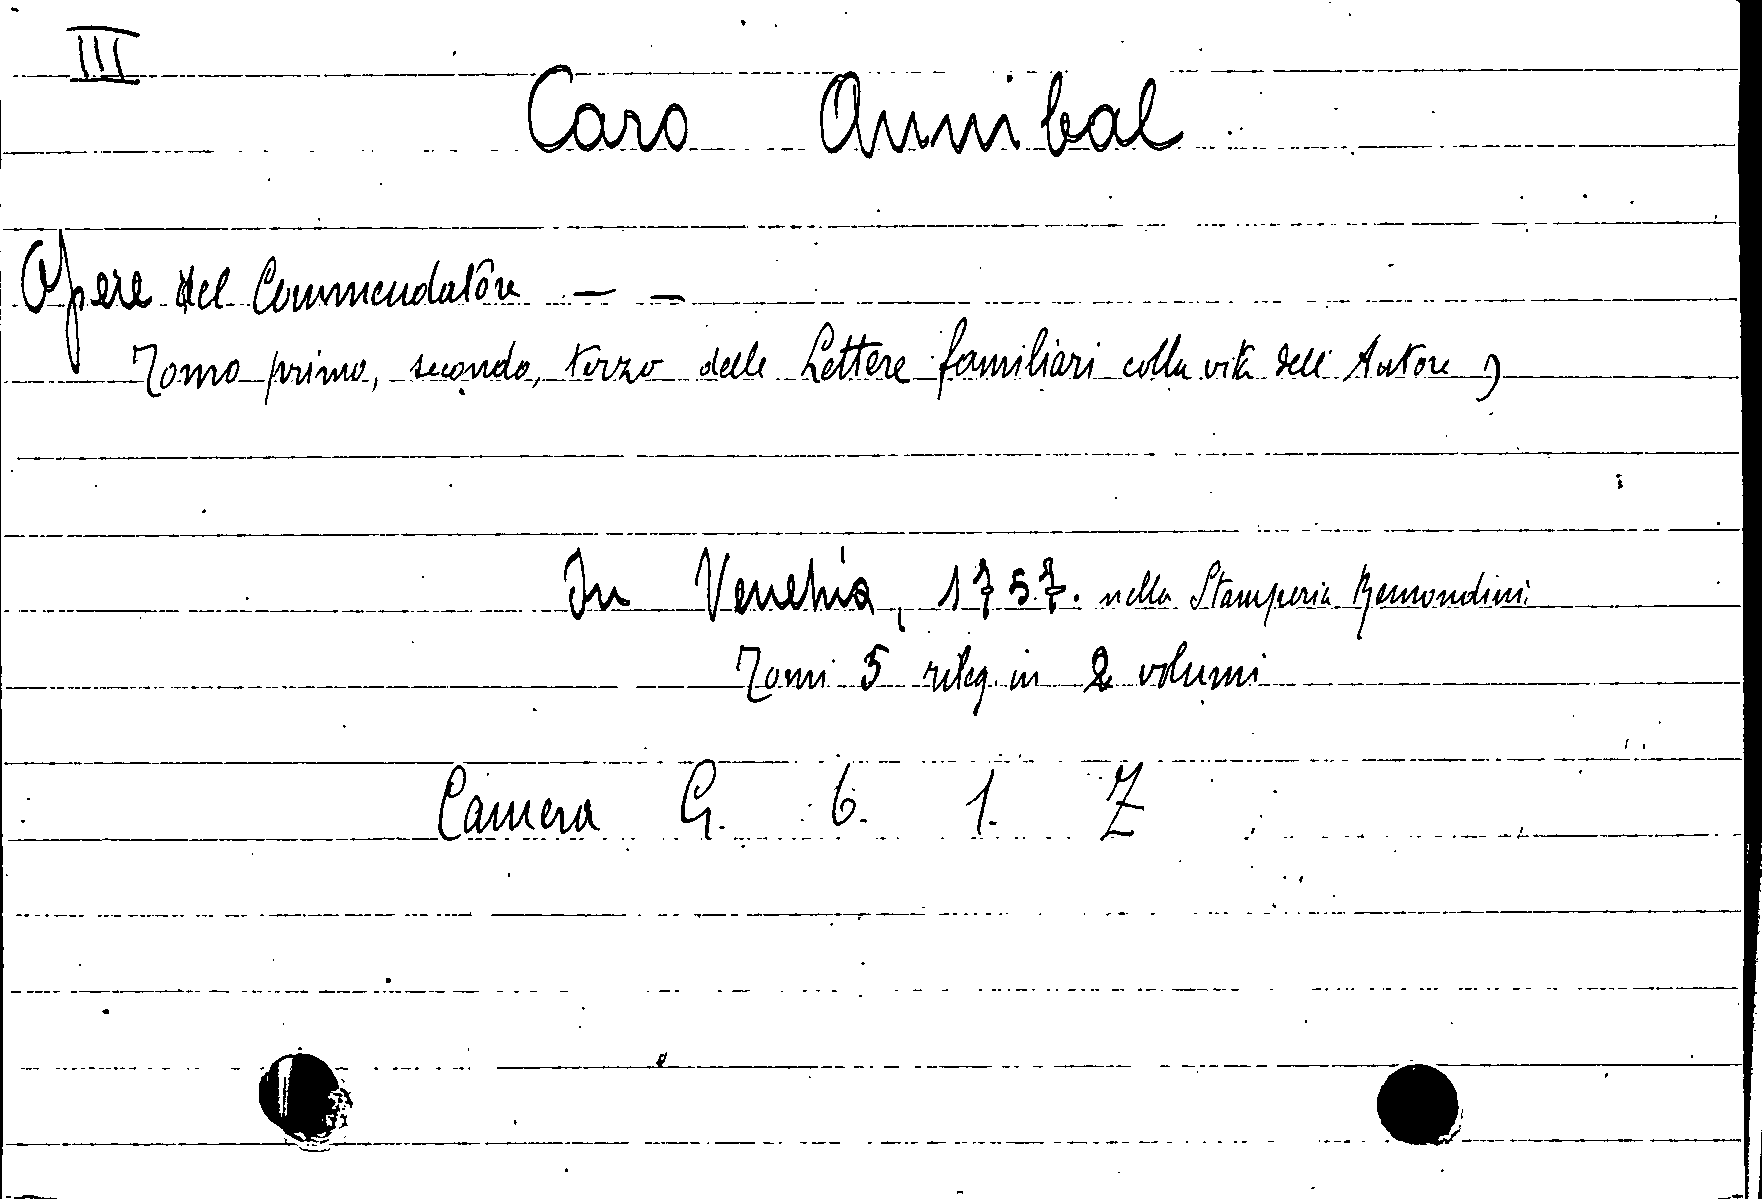 III
Caro Annibal
Opere del Commendatore — —
Tomo primo, secondo, terzo delle Lettere familiari colla vita dell' Autore )
In Venehia, 1757. nella Stamperia Remondini
Tomi 5 rileg. in 2 volumi
Camera G. 6. 1. Z